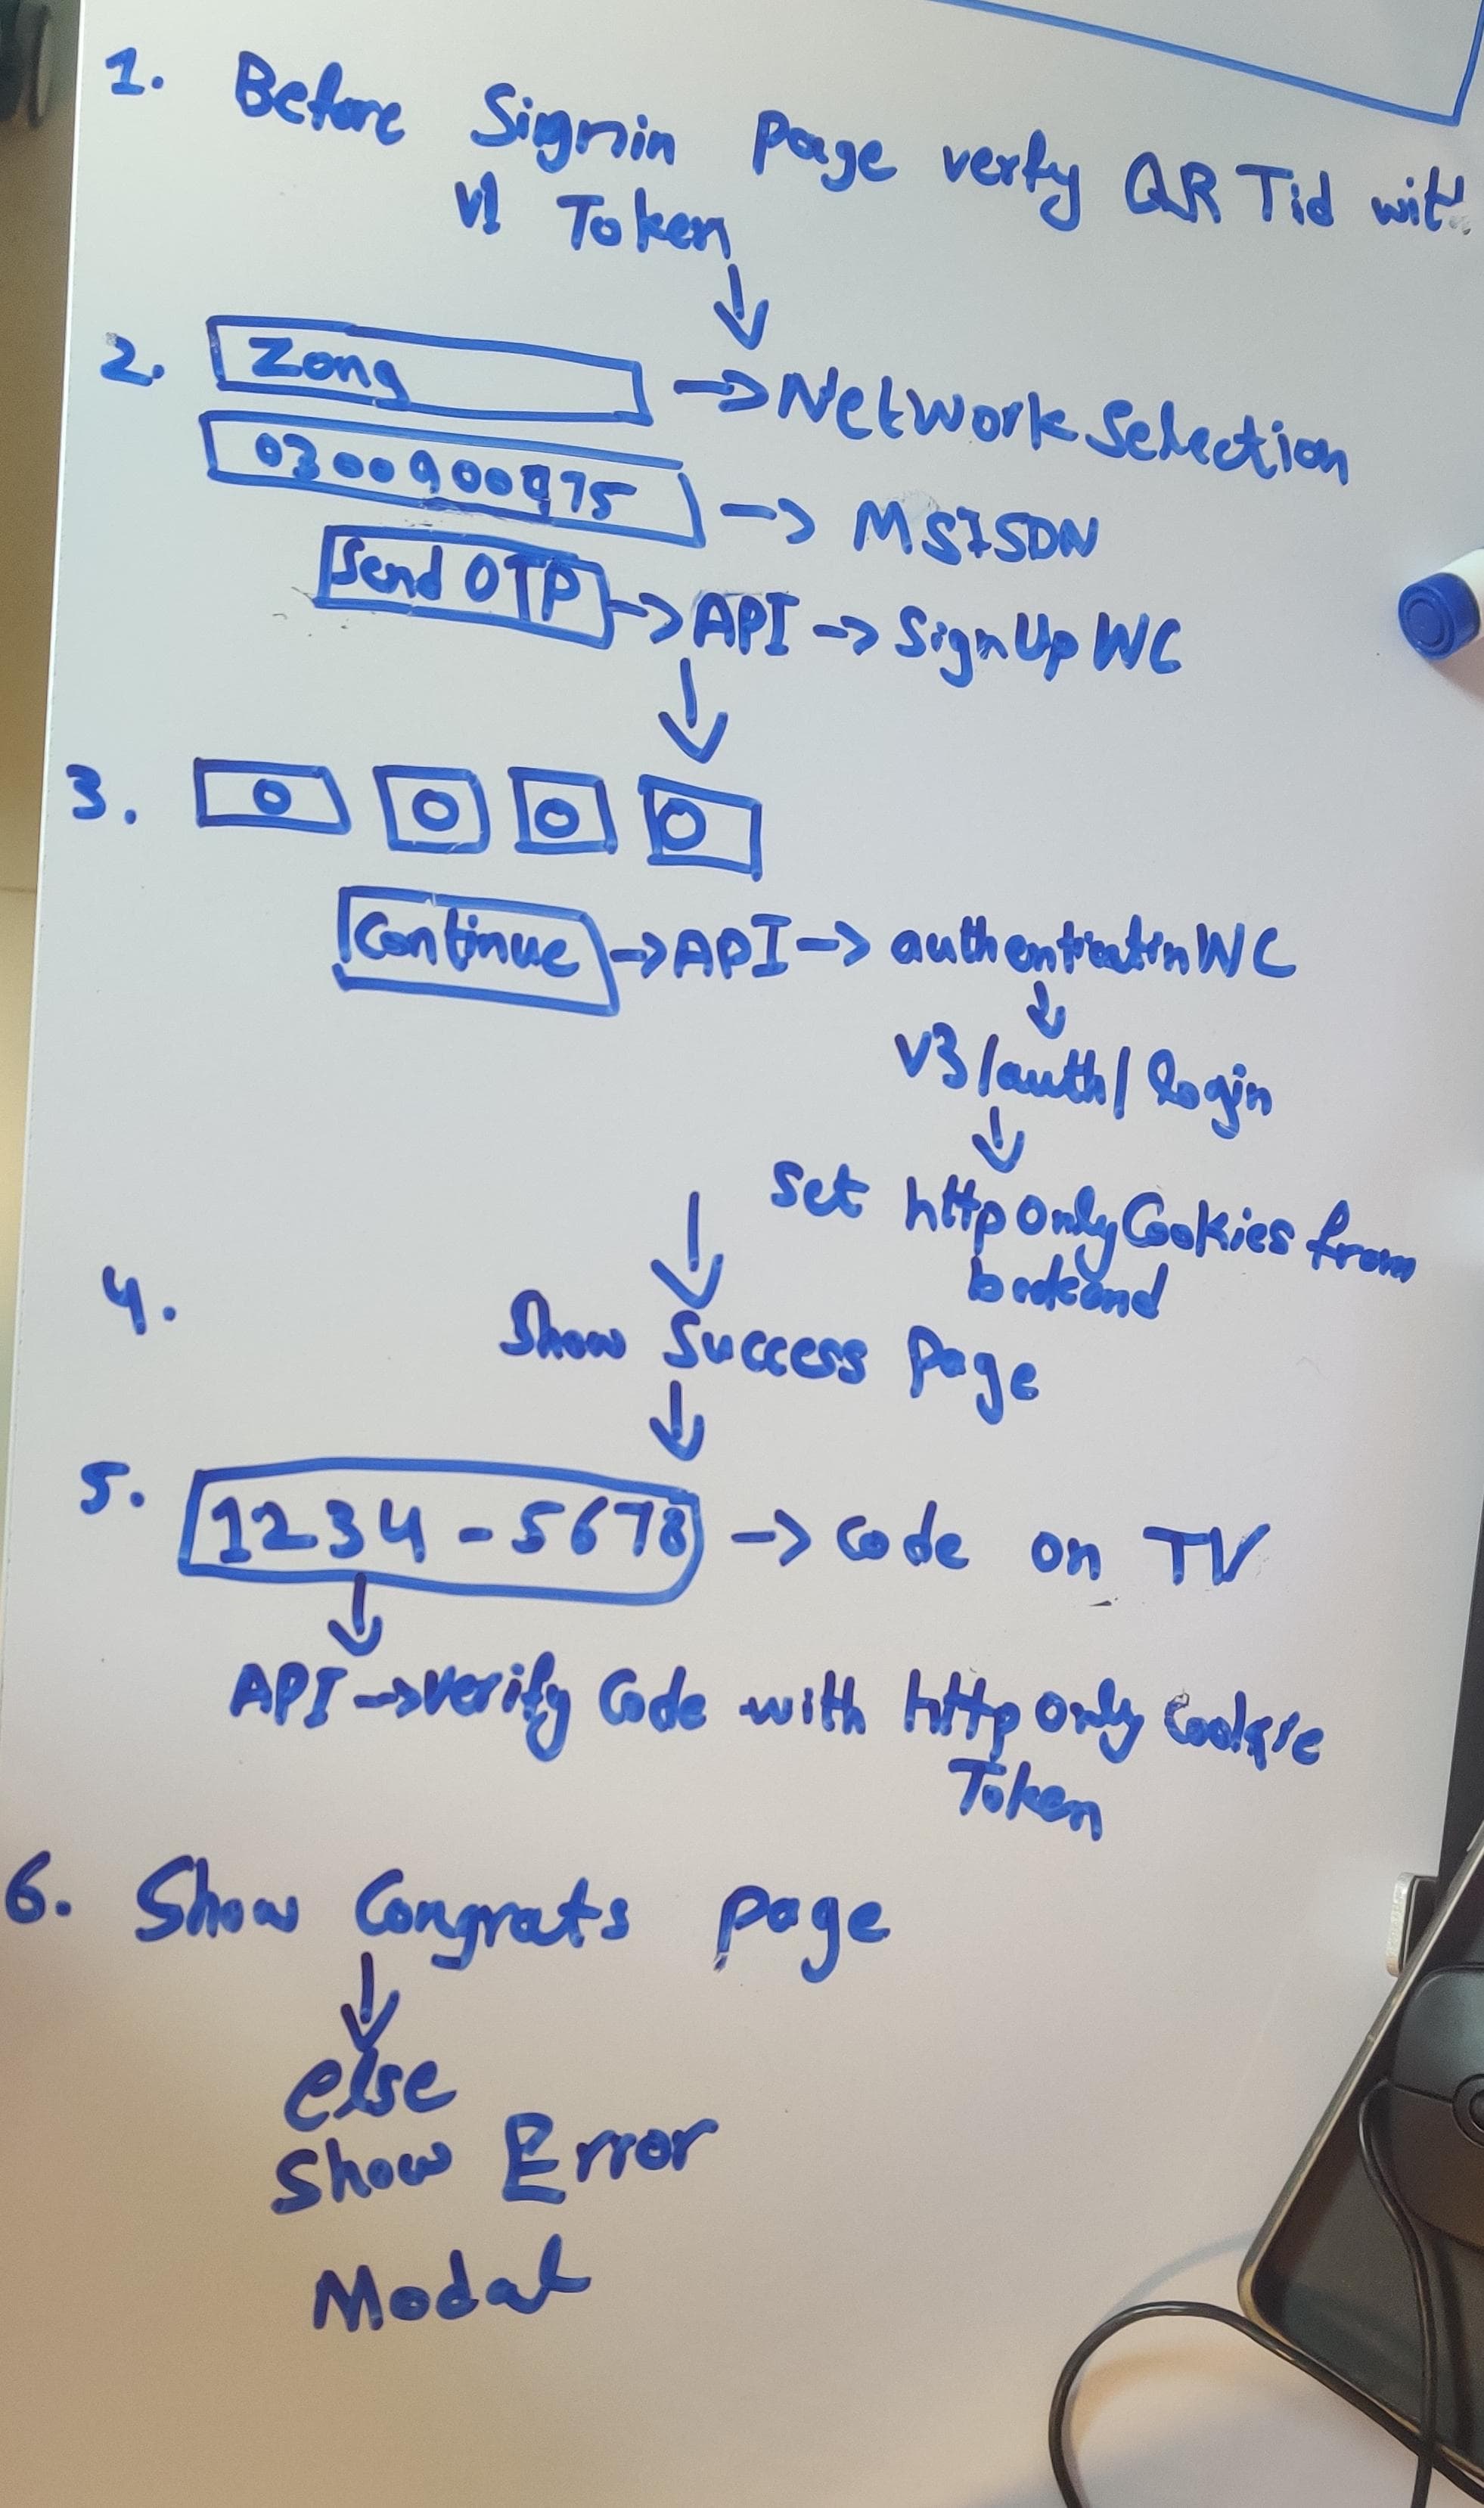 1. Before Signin Page verfy QR Tid with
v1 Token
2. Zong -> Network Selection
0300900975 -> MSISDN
Send OTP -> API -> SignUp WC
3. 0 0 0 0
Continue -> API -> authentication WC
v3/auth/login
Set http Only Cookies from
backend
4.
Show Success Page
5. 1234-5678 -> Code on TV
API -> verify Code with http Only Cookie
Token
6. Show Congrats page
else
Show Error
Modal